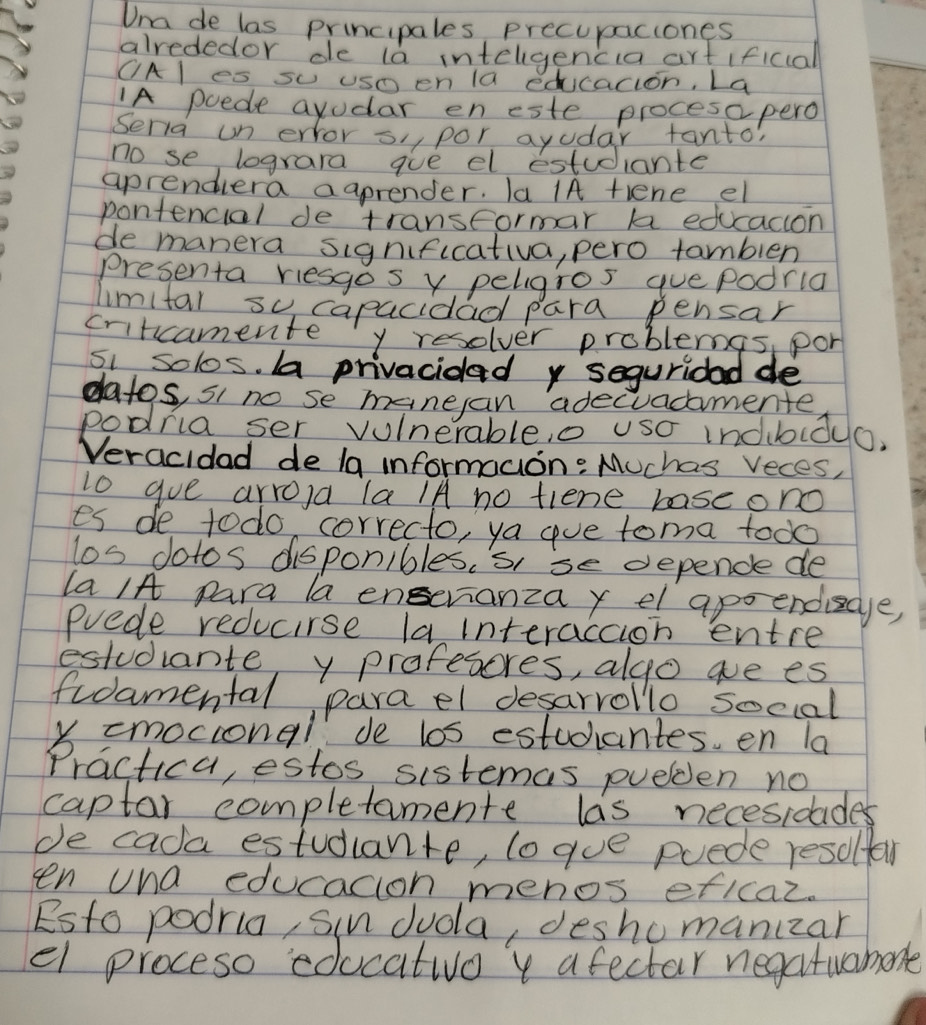 Una de las principales precupaciones
alrededor de la inteligencia artificial
(IA) es su uso en la educación. La
IA puede ayudar en este proceso, pero
Seria un error si, por ayudar tanto,
no se lograra que el estudiante
aprendiera a aprender. la IA tiene el
pontencial de transformar la educación
de manera significativa, pero tambien
Presenta riesgos y peligros que podria
limital su capacidad para pensar
criticamente y resolver problemas por
si solos. la privacidad y seguridad de
datos, si no se manejan adecuadamente,
podria ser vulnerable, o uso indibiduo.
Veracidad de la información: Muchas veces,
lo que arroja la IA no tiene base o no
es de todo correcto, ya que toma todo
los datos disponibles. si se depende de
la IA para la enseñanza y el aprendizaje,
puede reducirse la interacción entre
estudiante y profesores, algo que es
fudamental para el desarrollo social
y emocional de los estudiantes. en la
Práctica, estos sistemas pueden no
captar completamente las necesidades
de cada estudiante, lo que puede resultar
en una educación menos eficaz.
Esto podria, sin duda, deshumanizar
el proceso educativo y afectar negativamente